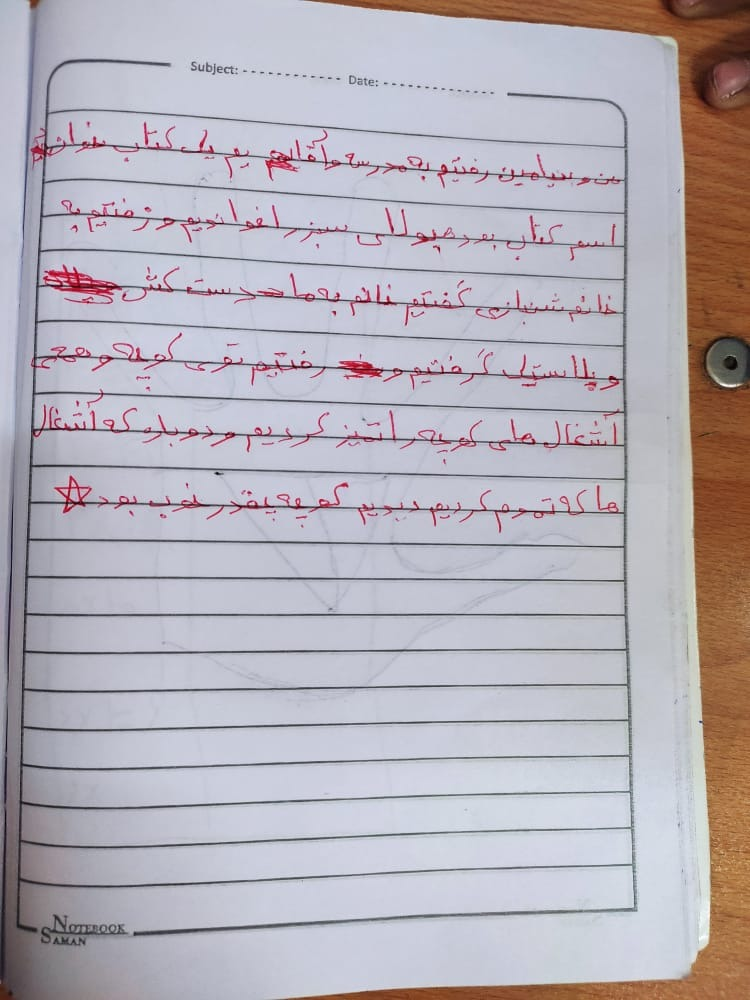 Subject: Date:
من و بیامین رفتیم به مدرسه و آقا یه یک کتاب خوان
اسم کتاب بود هیولای سبز را خواندیم و رفتیم به
خانم شنبازی گفتیم خانم به ما دست کش
و پلاستیک گرفتیم و رفتیم توی کوچه و همی
آشغال های کوچه را تمیز کردیم و دوباره که آشغال
ها که تموم کردیم دیدیم کوچه چقدر خوب بود
NOTEBOOK
SAMAN